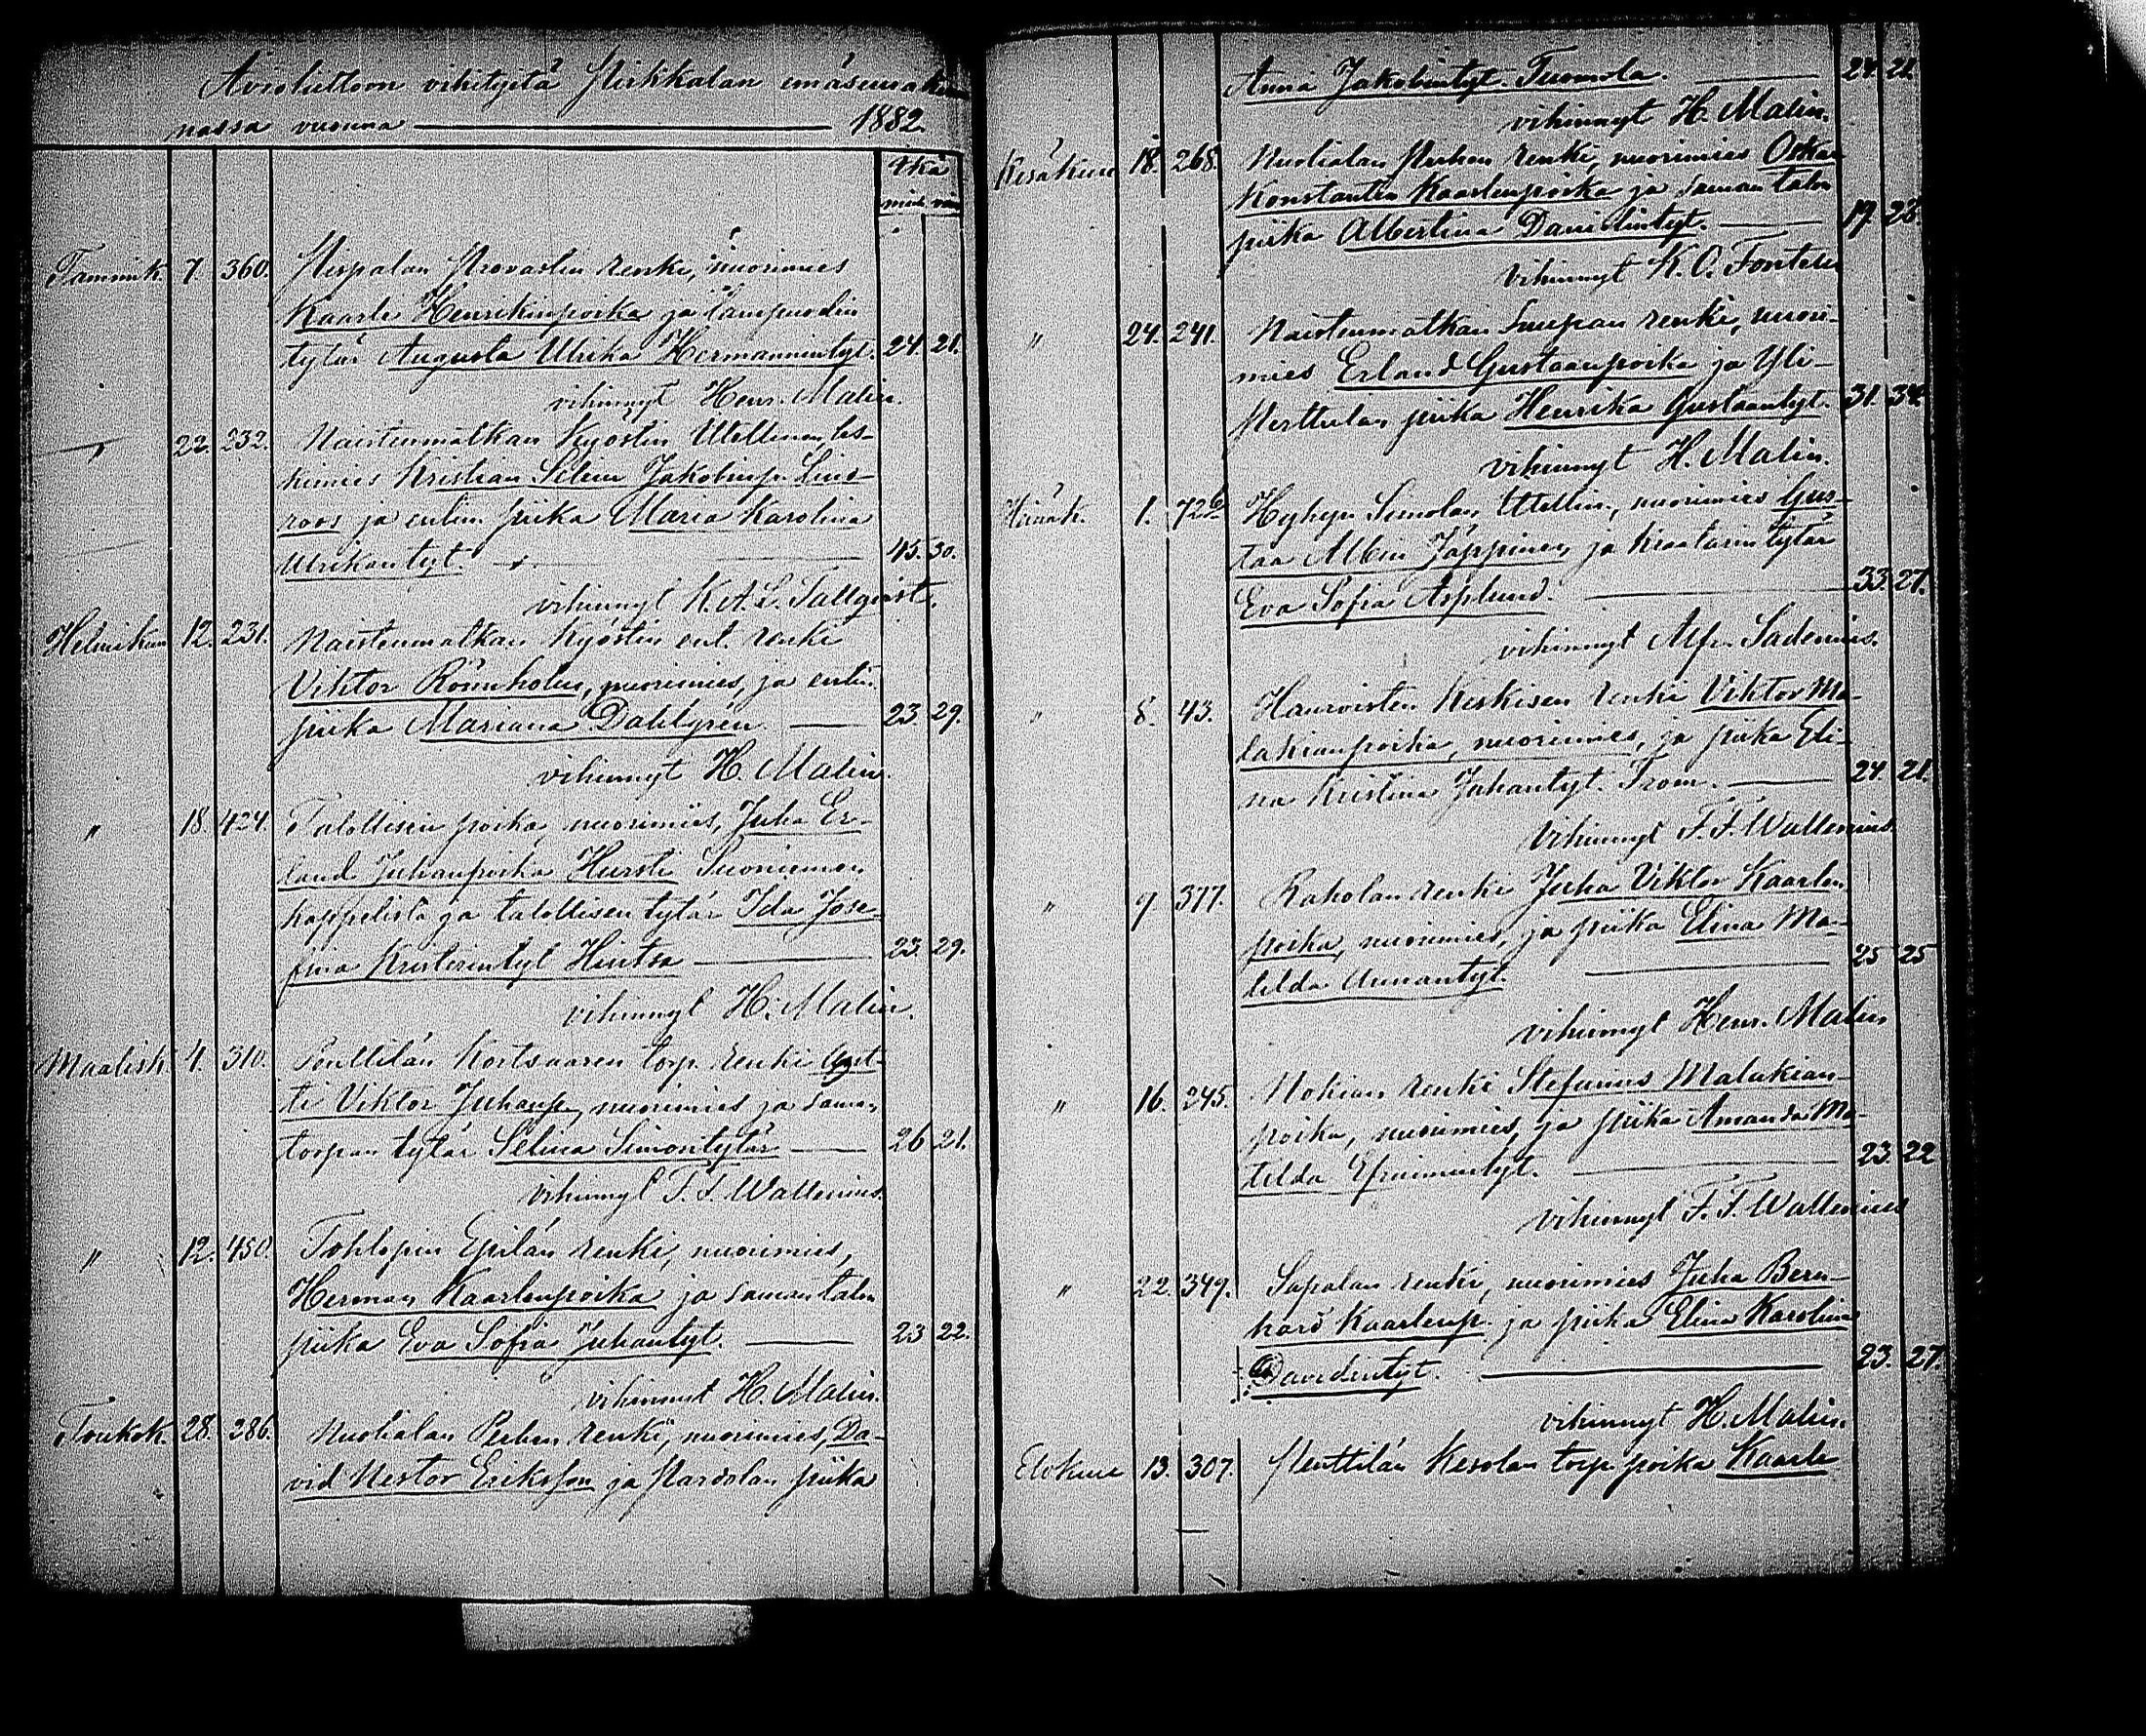 Avioliittoon vihityitä Pirkkalan emäseurakun-
nassa vuonna 1882.
Ikä
mieh. vaim.
Tammik. 7. 360. Pispalan Provastin renki, nuorimies
Kaarle Henrikinpoika ja lampuodin
tytär Augusta Ulrika Hermannintyt. 24. 21.
vihinnyt Henr. Malin.
" 22. 232. Naistenmatkan Kyöstin itsellinen, les-
kimies Kristian Selim Jakobinp. Lind-
roos ja entin. piika Maria Karolina
Ulrikantyt. 45. 30.
vihinnyt K. A. L. Tallqvist.
Helmikuu 12. 231. Naistenmatkan Kyöstin ent. renki
Viktor Rönnholm, nuorimies, ja entin.
piika Mariana Dahlgrén 23 29.
vihinnyt H. Malin.
" 18. 424. Talollisen poika, nuorimies, Juha Er-
land Juhanpoika Hursti Suoniemen
kappelista ja talollisen tytär Ida Jose-
fina Kristerintyt Hintsa 23. 29.
vihinnyt H. Malin.
Maalisk. 4. 310. Penttilän Kortsaaren torp. renki Kyst-
ti Viktor Juhanp., nuorimies ja saman
torpan tytär Selina Simontytär 26 21.
vihinnyt F. F. Wallenius.
" 12. 450. Tohlopin Epilän renki, nuorimies,
Herman Kaarlenpoika ja saman talon
piika Eva Sofia Juhantyt. 23 22.
vihinnyt H. Malin.
Toukok. 28. 286. Nuolialan renki, nuorimies, Da-
vid Nestor Eriksson ja Pardolan piika
Anna Jakobintyt. Tuomola. 24. 21.
vihinnyt H. Malin.
Kesäkuu 18. 268. Nuolialan renki, nuorimies Oskar
Konstantin Kaarlenpoika ja saman talon
piika Albertina Davidintyt. 19 23.
vihinnyt K. O. Fontell
" 24. 241. Naistenmatkan renki, nuori-
mies Erland Gustaanpoika ja Yli-
Perttulan piika Henrika Gustaantyt. 31. 34.
vihinnyt H. Malin.
Heinäk. 1. 726. Hyhyn Simolan itsellin., nuorimies Gus-
taa Albin Jäppinen ja kraatarin tytär
Eva Sofia Asplund. 33. 27.
vihinnyt Alfr. Sadenius.
" 8. 43. Haaviston Keskisen renki Viktor Ma-
lakianpoika, nuorimies, ja piika Eli-
na Kristina Juhantyt. From. 24. 21.
vihinnyt F. F. Wallenius.
" 9 377. Raholan renki Juha Viktor Kaarlen
poika, nuorimies, ja piika Elina Ma-
tilda Annantyt. 25 25
vihinnyt Henr. Malin
" 16. 245. Nokian renki Stefanus Malakian-
poika, nuorimies, ja piika Amanda Ma-
tilda Efraimintyt. 23. 22
vihinnyt F. F. Wallenius
" 22. 349. Sapalan renki, nuorimies Juha Bern-
hard Kaarlenp. ja piika Elina Karolina
Davidintyt. 23. 27.
vihinnyt H. Malin.
Elokuu 13. 307. Penttilän Kesolan torp. poika Kaarle